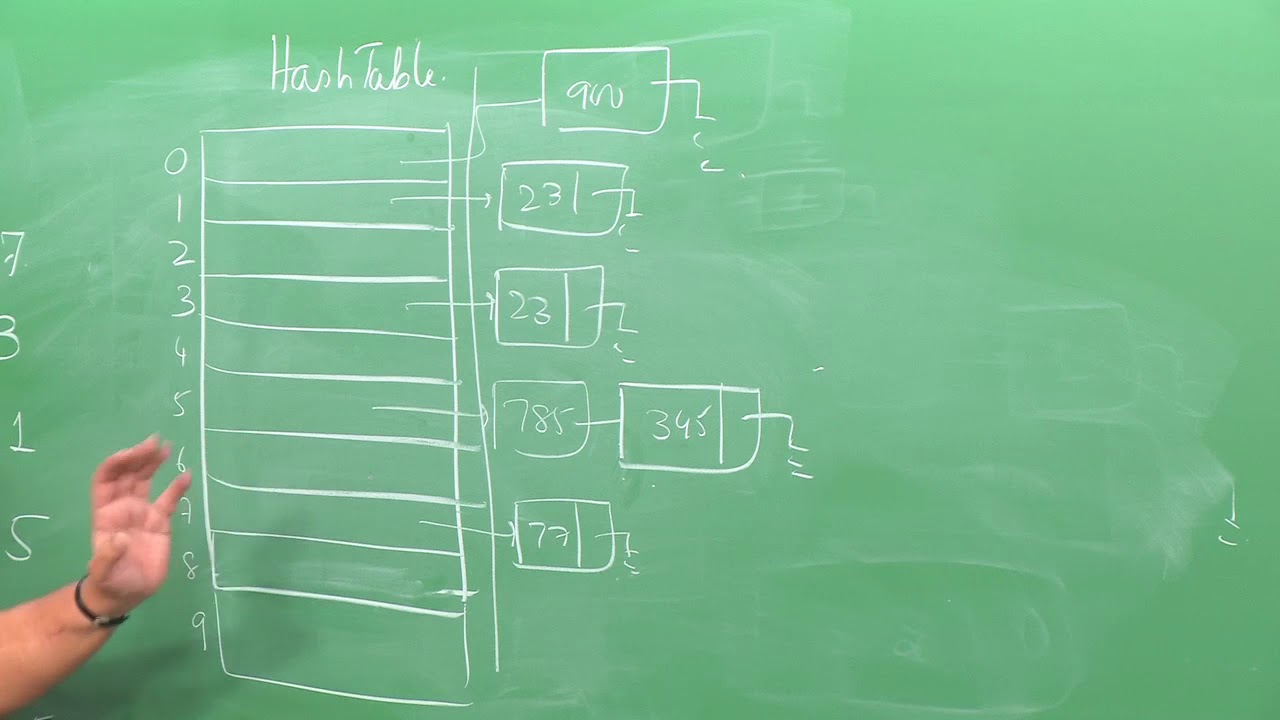 HashTable.
0
900
1
231
7
2
3
23
3
4
5
785
345
1
6
7
77
5
8
9